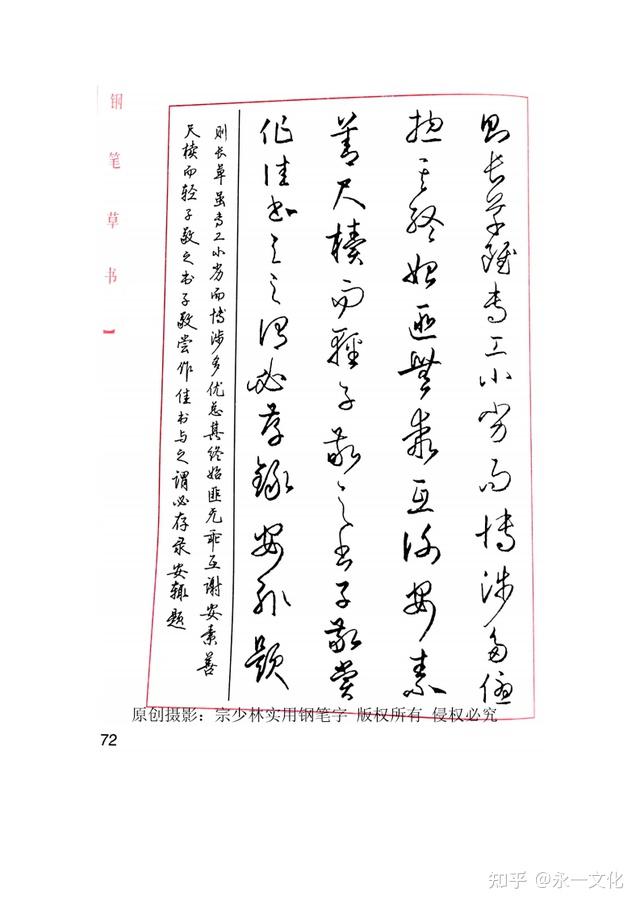 則長草雖專工小劣而博涉多優
揔其終始匪無乖互謝安素
善尺牘而輕子敬之書子敬嘗
作佳書与之謂必存錄安輒題
则长草虽专工小劣而博涉多优总其终始匪无乖互谢安素善
尺牍而轻子敬之书子敬尝作佳书与之谓必存录安辄题
钢笔草书】
原创摄影：宗少林实用钢笔字 版权所有 侵权必究
72
知乎 @永一文化